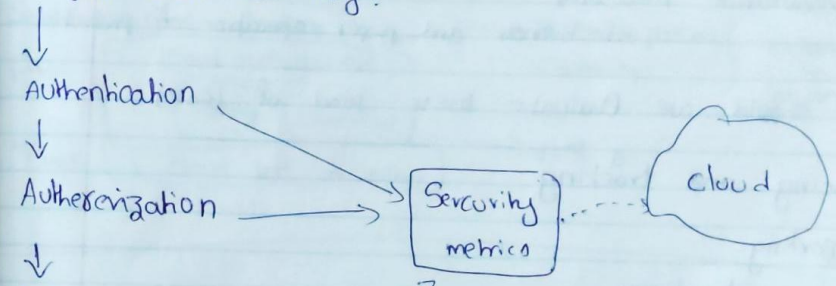 Authentication
Autherevization
Sercurity
metrics
cloud